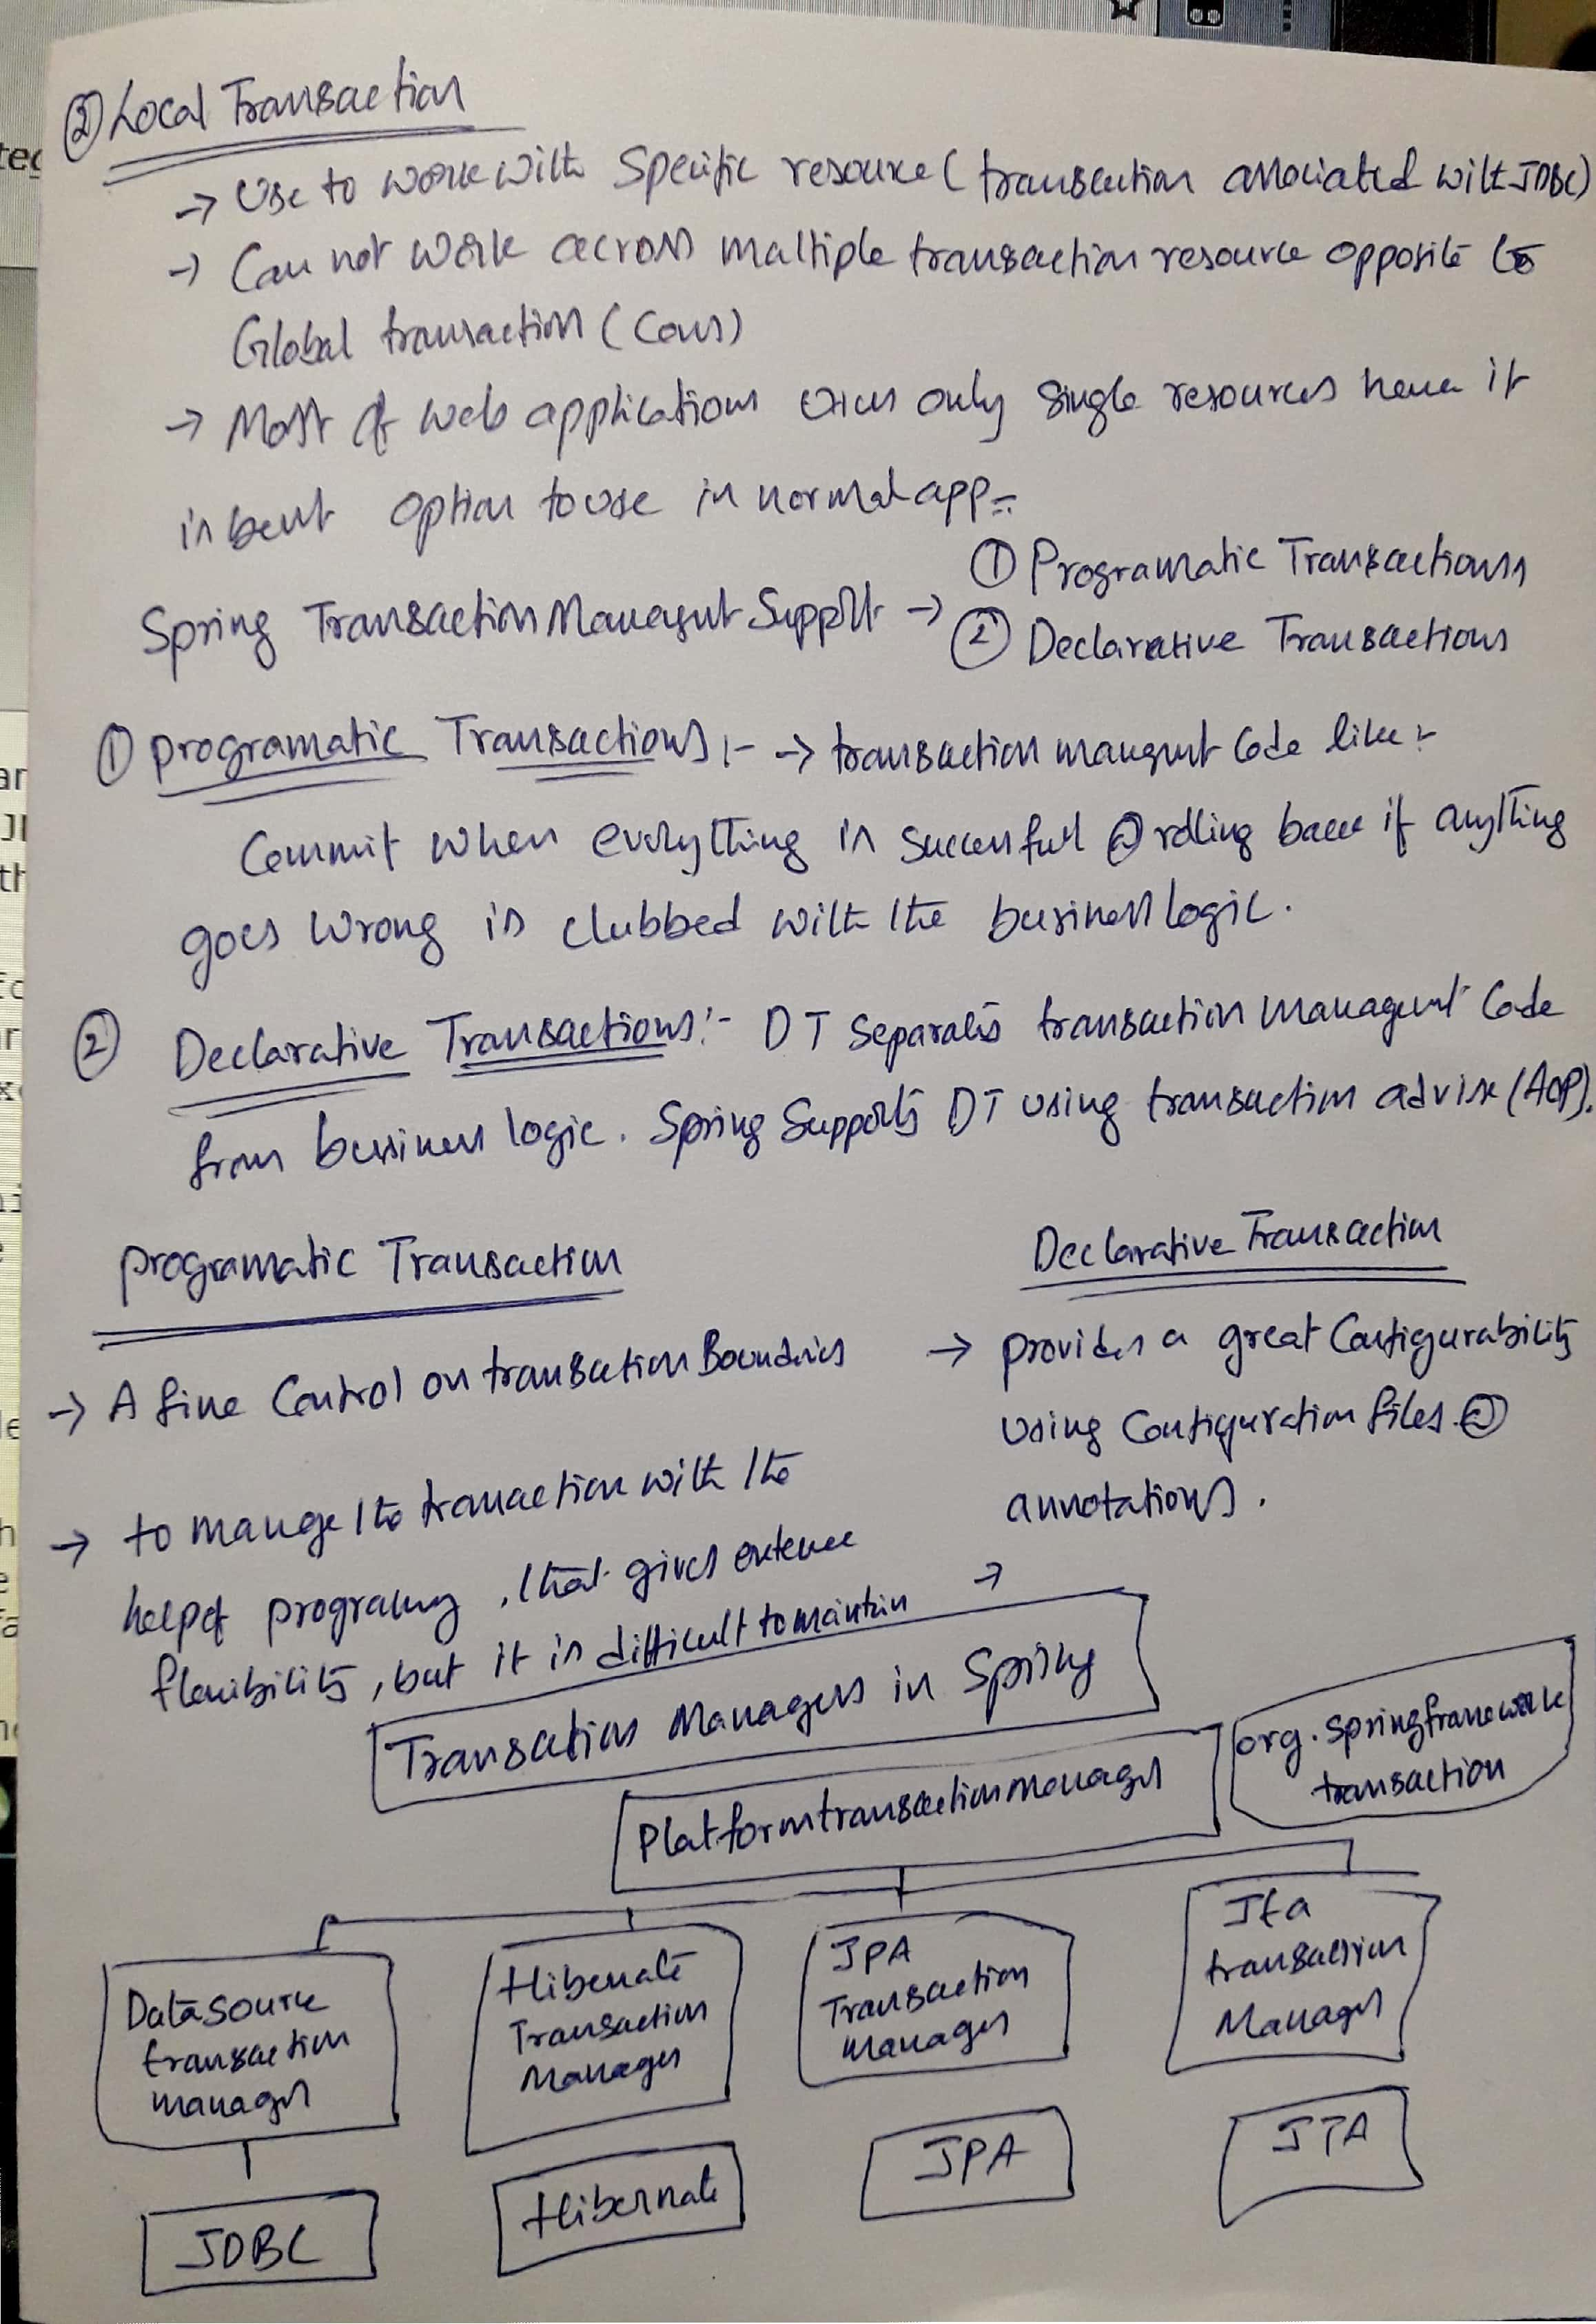 ② Local Transaction
→ Use to work with Specific resource (transaction associated with JDBC)
→ Can not work across multiple transaction resource opposite to
Global transaction (Cons)
→ Most of web applications uses only single resources hence it
is best option to use in normal app.
Spring Transaction Managemt Support → ① Programatic Transactions
② Declarative Transactions
① programatic Transactions :- → transaction managmt Code like :-
Commit when everything is successful or rolling back if anything
goes wrong is clubbed with the business logic.
② Declarative Transactions :- DT Separates transaction management Code
from business logic. Spring Supports DT using transaction advise (AOP).
programatic Transaction
→ A fine Control on transaction Boundries
→ to mange the transaction with the
help of programing, that gives exteme
flexibility, but it is difficult to maintain
Declarative Transaction
→ provides a great Configurability
using Configuration files or
annotations.
→
Transaction Managers in Spring
org.springframework
transaction
Platformtransactionmanager
Datasource
transaction
manager
Hibernate
Transaction
Manager
JPA
Transaction
manager
Jta
transaction
Manager
JDBC
Hibernate
JPA
JTA